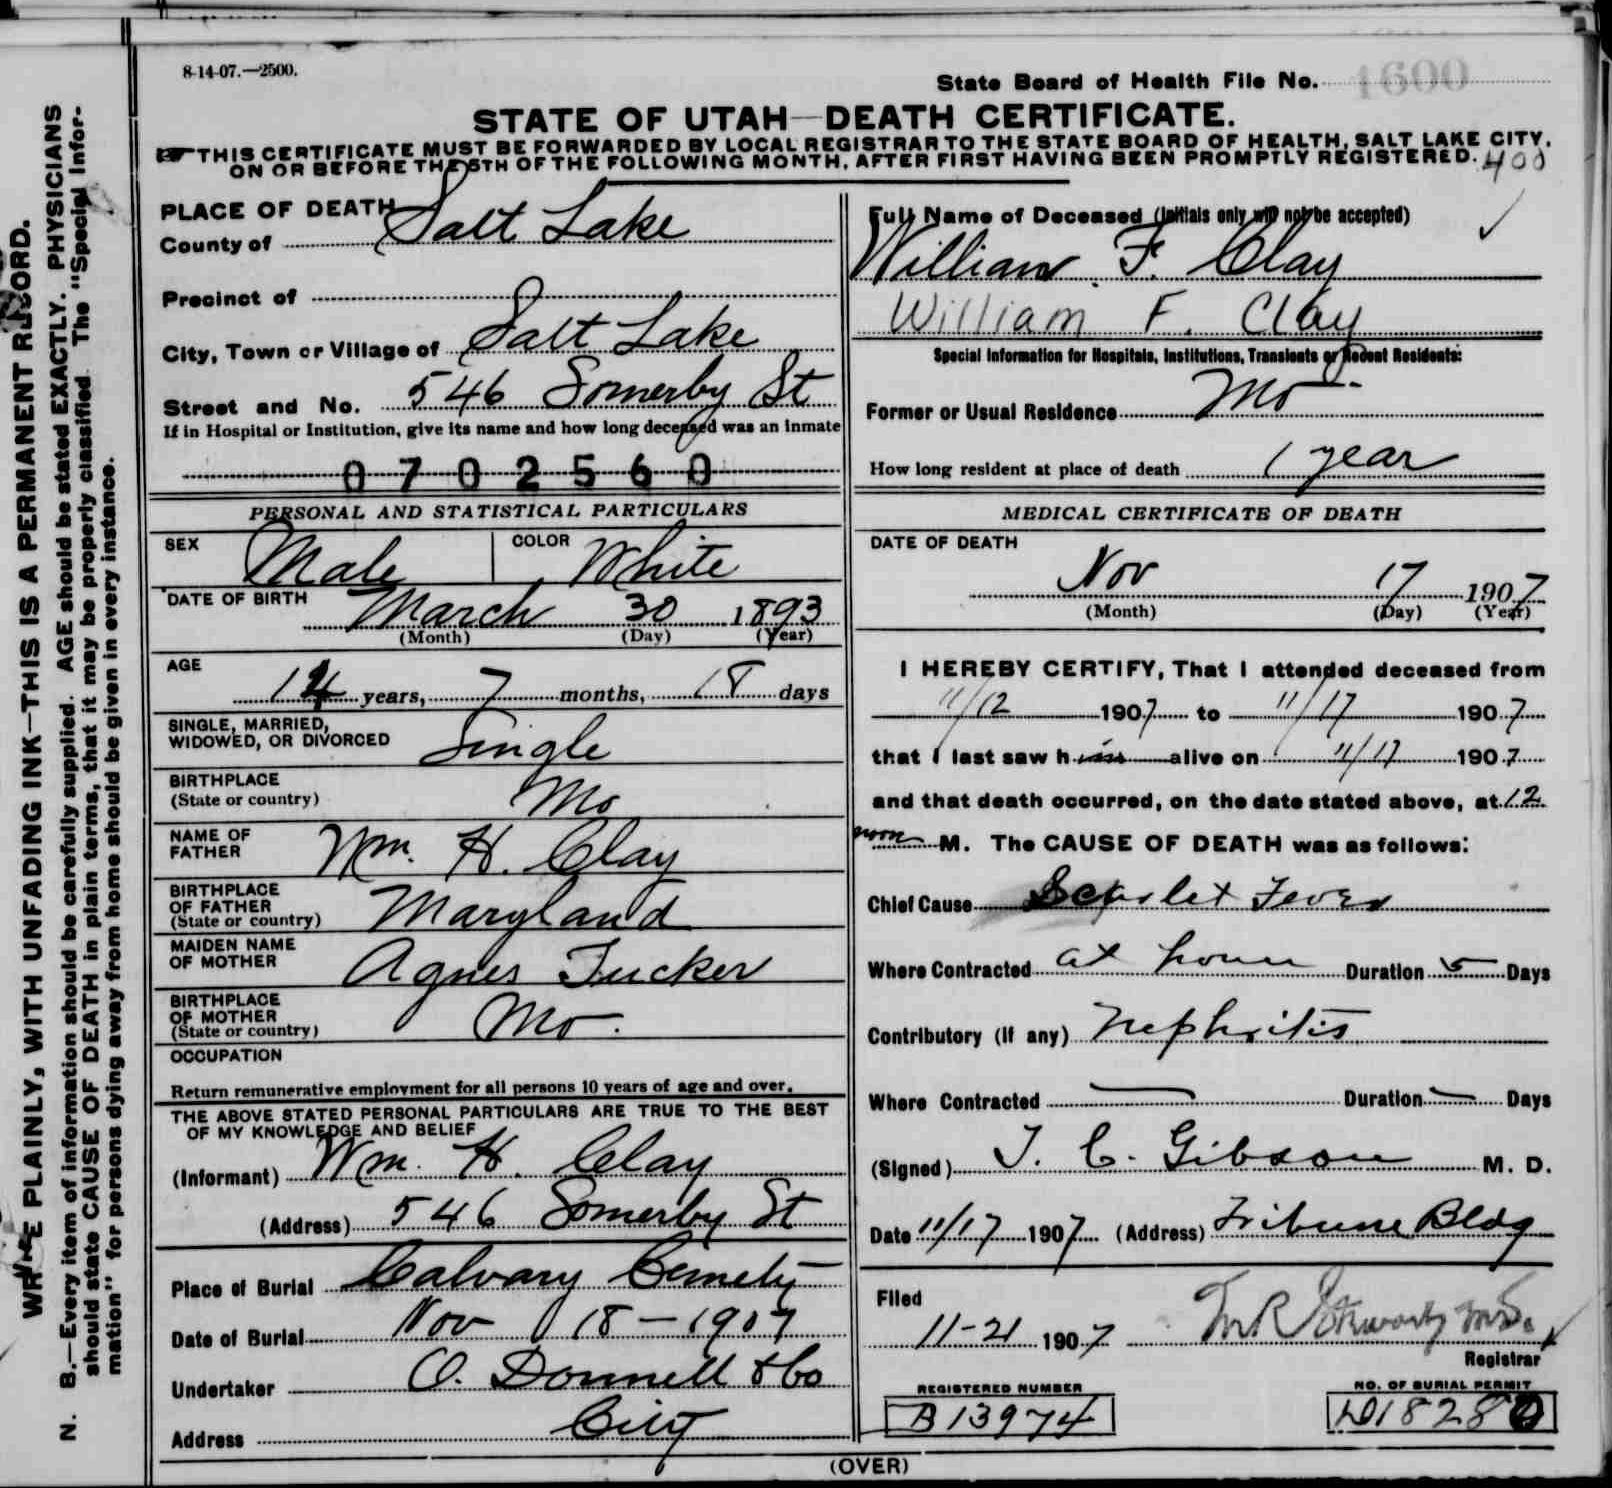 8-14-07.—2500.
State Board of Health File No. 1600
STATE OF UTAH—DEATH CERTIFICATE.
THIS CERTIFICATE MUST BE FORWARDED BY LOCAL REGISTRAR TO THE STATE BOARD OF HEALTH, SALT LAKE CITY,
ON OR BEFORE THE 5TH OF THE FOLLOWING MONTH, AFTER FIRST HAVING BEEN PROMPTLY REGISTERED. 400
WRITE PLAINLY, WITH UNFADING INK—THIS IS A PERMANENT RECORD.
N. B.—Every item of information should be carefully supplied. AGE should be stated EXACTLY. PHYSICIANS
should state CAUSE OF DEATH in plain terms, that it may be properly classified. The "Special Infor-
mation" for persons dying away from home should be given in every instance.
PLACE OF DEATH
County of Salt Lake
Precinct of
City, Town or Village of Salt Lake
Street and No. 546 Somerby St
If in Hospital or Institution, give its name and how long deceased was an inmate
0702560
PERSONAL AND STATISTICAL PARTICULARS
SEX Male COLOR White
DATE OF BIRTH
March 30 1893
(Month) (Day) (Year)
AGE
14 years, 7 months, 18 days
SINGLE, MARRIED,
WIDOWED, OR DIVORCED Single
BIRTHPLACE
(State or country) Mo
NAME OF
FATHER Wm. H. Clay
BIRTHPLACE
OF FATHER
(State or country) Maryland
MAIDEN NAME
OF MOTHER Agnes Tucker
BIRTHPLACE
OF MOTHER
(State or country) Mo.
OCCUPATION
Return remunerative employment for all persons 10 years of age and over.
THE ABOVE STATED PERSONAL PARTICULARS ARE TRUE TO THE BEST
OF MY KNOWLEDGE AND BELIEF
(Informant) Wm. H. Clay
(Address) 546 Somerby St
Place of Burial Calvary Cemety
Date of Burial Nov 18—1907
Undertaker O. Donnell & Co
Address City
Full Name of Deceased (Initials only will not be accepted)
William F. Clay
William F. Clay
Special Information for Hospitals, Institutions, Transients or Recent Residents:
Former or Usual Residence Mo
How long resident at place of death 1 year
MEDICAL CERTIFICATE OF DEATH
DATE OF DEATH
Nov 17 1907
(Month) (Day) (Year)
I HEREBY CERTIFY, That I attended deceased from
11/12 1907 to 11/17 1907
that I last saw him alive on 11/17 1907
and that death occurred, on the date stated above, at 12
noon M. The CAUSE OF DEATH was as follows:
Chief Cause Scarlet Fever
Where Contracted at home Duration 5 Days
Contributory (if any) Nephritis
Where Contracted — Duration — Days
(Signed) T. C. Gibson M. D.
Date 11/17 1907 (Address) Tribune Bldg
Filed
11-21 1907
Registrar
REGISTERED NUMBER
B13974
NO. OF BURIAL PERMIT
(OVER)